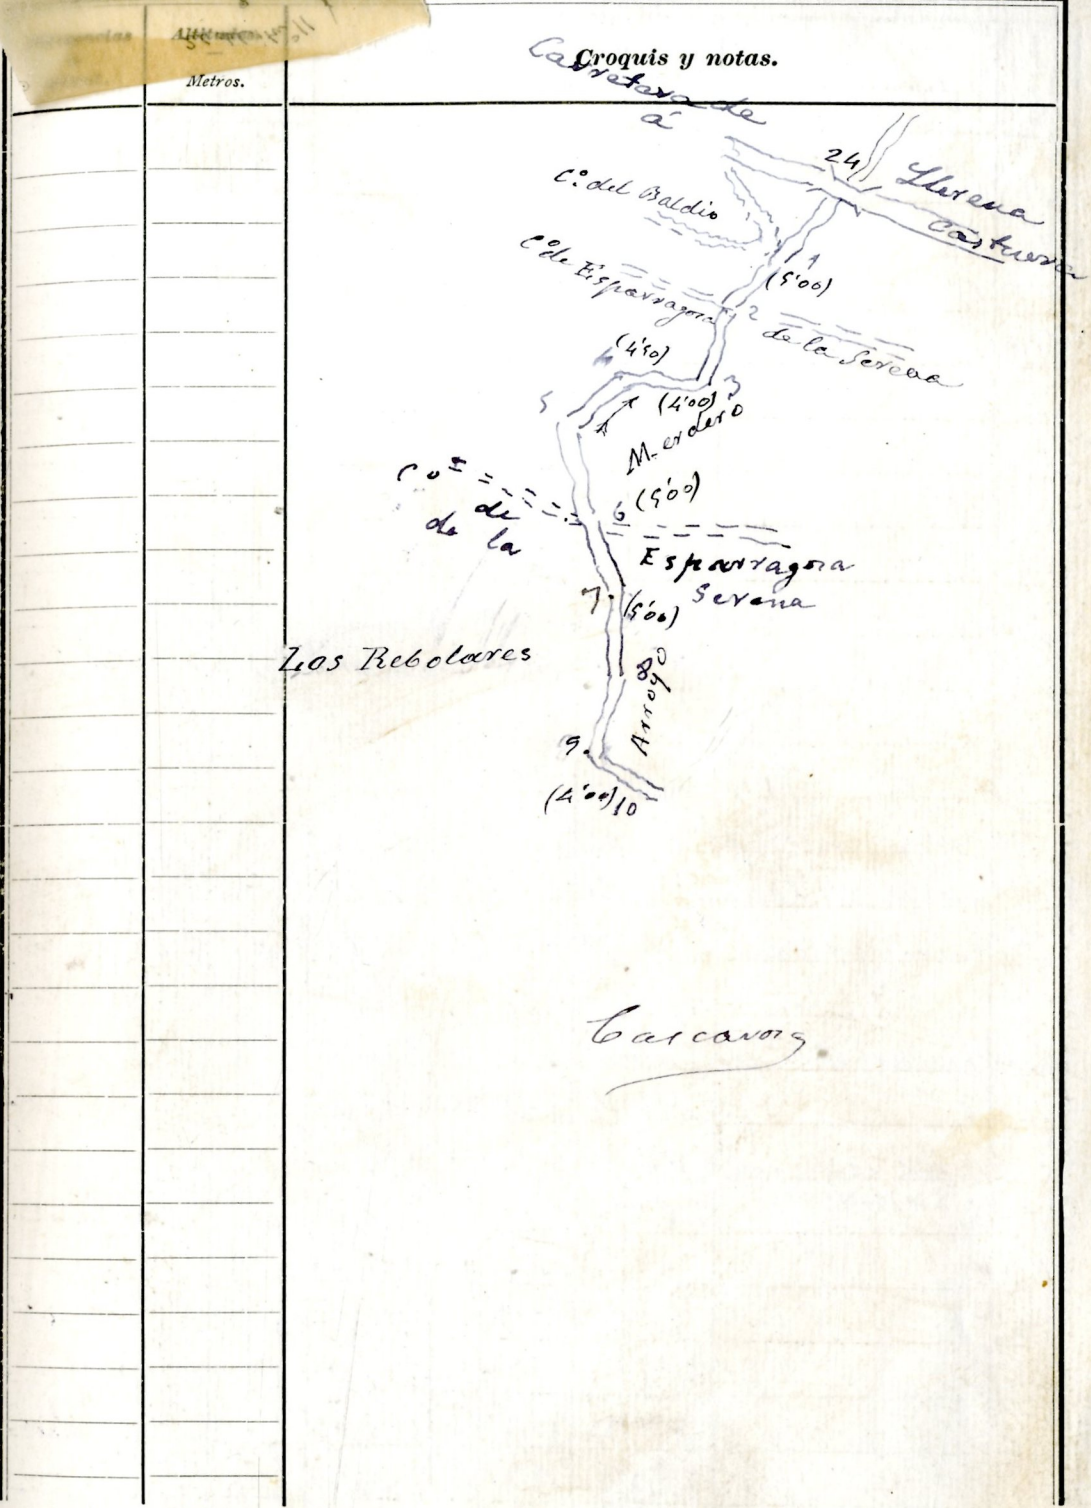 Altitudes
Metros.
Croquis y notas.
Carretera de
á
24
Llerena
Castuera
C.º del Baldio
1
(5'00)
Cº de Esparragosa
2
de la Serena
4
(4'50)
3
5
(4'00)
Merdero
Cº
de
de la
6 (5'00)
Esparragosa
Serena
7
(5'00)
Los Rebolares
8
Arroyo
9
(4'00) 10